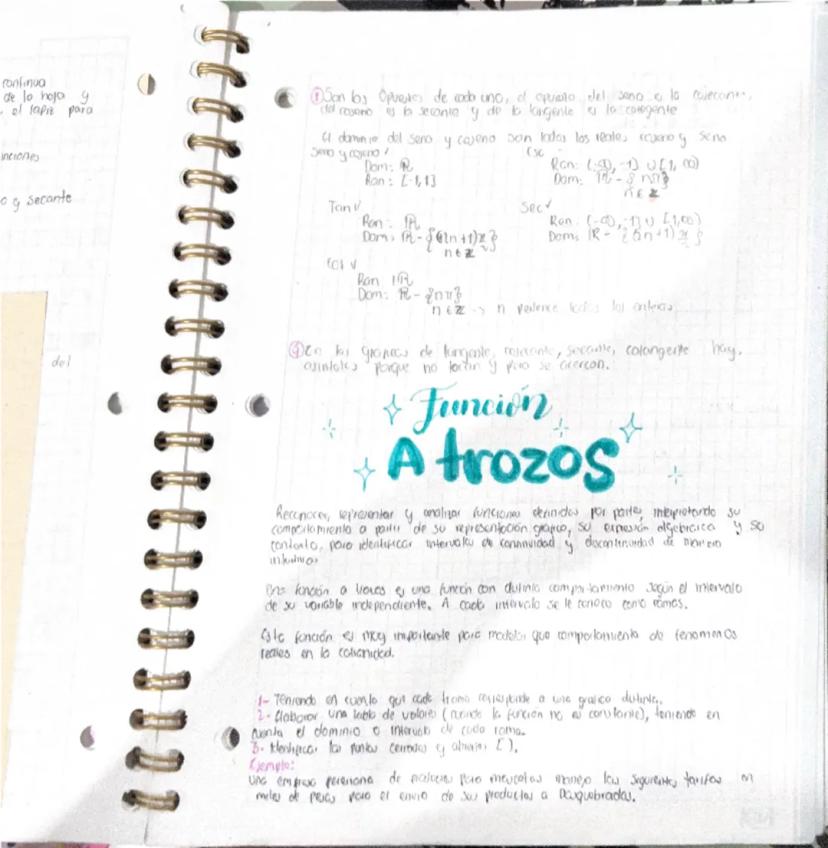 continua
de la hoja y
el lapiz para
nciones
o y secante
del
① Son los Opuestos de cada uno, el opuesto del seno es la cosecante,
del coseno es la secante y de la tangente es la cotangente
El dominio del seno y coseno son todos los reales, coseno y seno
Seno y coseno
Dom: ℝ
Ran: [-1,1]
Csc
Ran: (-∞, -1] ∪ [1, ∞)
Dom: ℝ - {nπ}
n ∈ Z
Tan
Ran: ℝ
Dom: ℝ - {(2n+1)π/2}
n ∈ Z
Sec
Ran: (-∞, -1] ∪ [1,∞)
Dom: ℝ - {(2n+1)π/2}
Cot
Ran ℝ
Dom: ℝ - {nπ}
n ∈ Z → n todos los enteros
En las graficas de tangente, secante, cotangente hay
asintotas porque no tocan y pero se acercan.
Función
A trozos
Reconocer, representar y analizar funciones definidas por partes, interpretando su
comportamiento a partir de su representación grafica, su expresión algebraica y su
contexto, para identificar intervalos de continuidad y discontinuidad de manera
intuitiva.
Una función a trozos es una función con distinto comportamiento según el intervalo
de su variable independiente. A cada intervalo se le conoce como ramas.
Esta función es muy importante para modelar que comportamiento de fenomenos
reales en la cotianidad.
1- Teniendo en cuenta que cada tramo corresponde a una grafica distinta.
2- Elaborar una tabla de valores (cuando la función no es constante), teniendo en
cuenta el dominio o intervalo de cada rama.
3- Identificar los puntos cerrados y abiertos [ ).
Ejemplo:
Una empresa pereirana de productos para mascotas maneja las siguientes tarifas en
miles de pesos para el envio de sus productos a Dosquebradas.